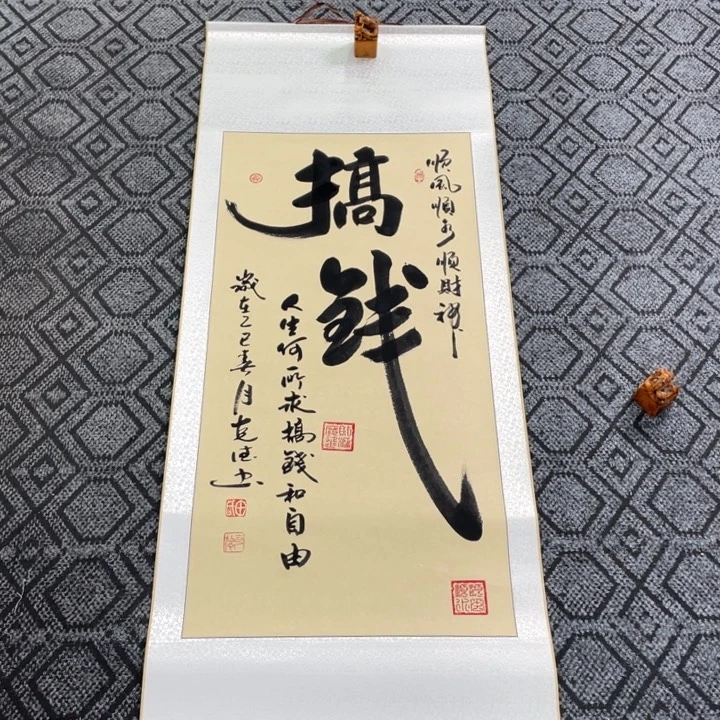 顺风顺水顺财神
搞钱
人生何所求搞钱和自由
岁在乙巳春月克德书